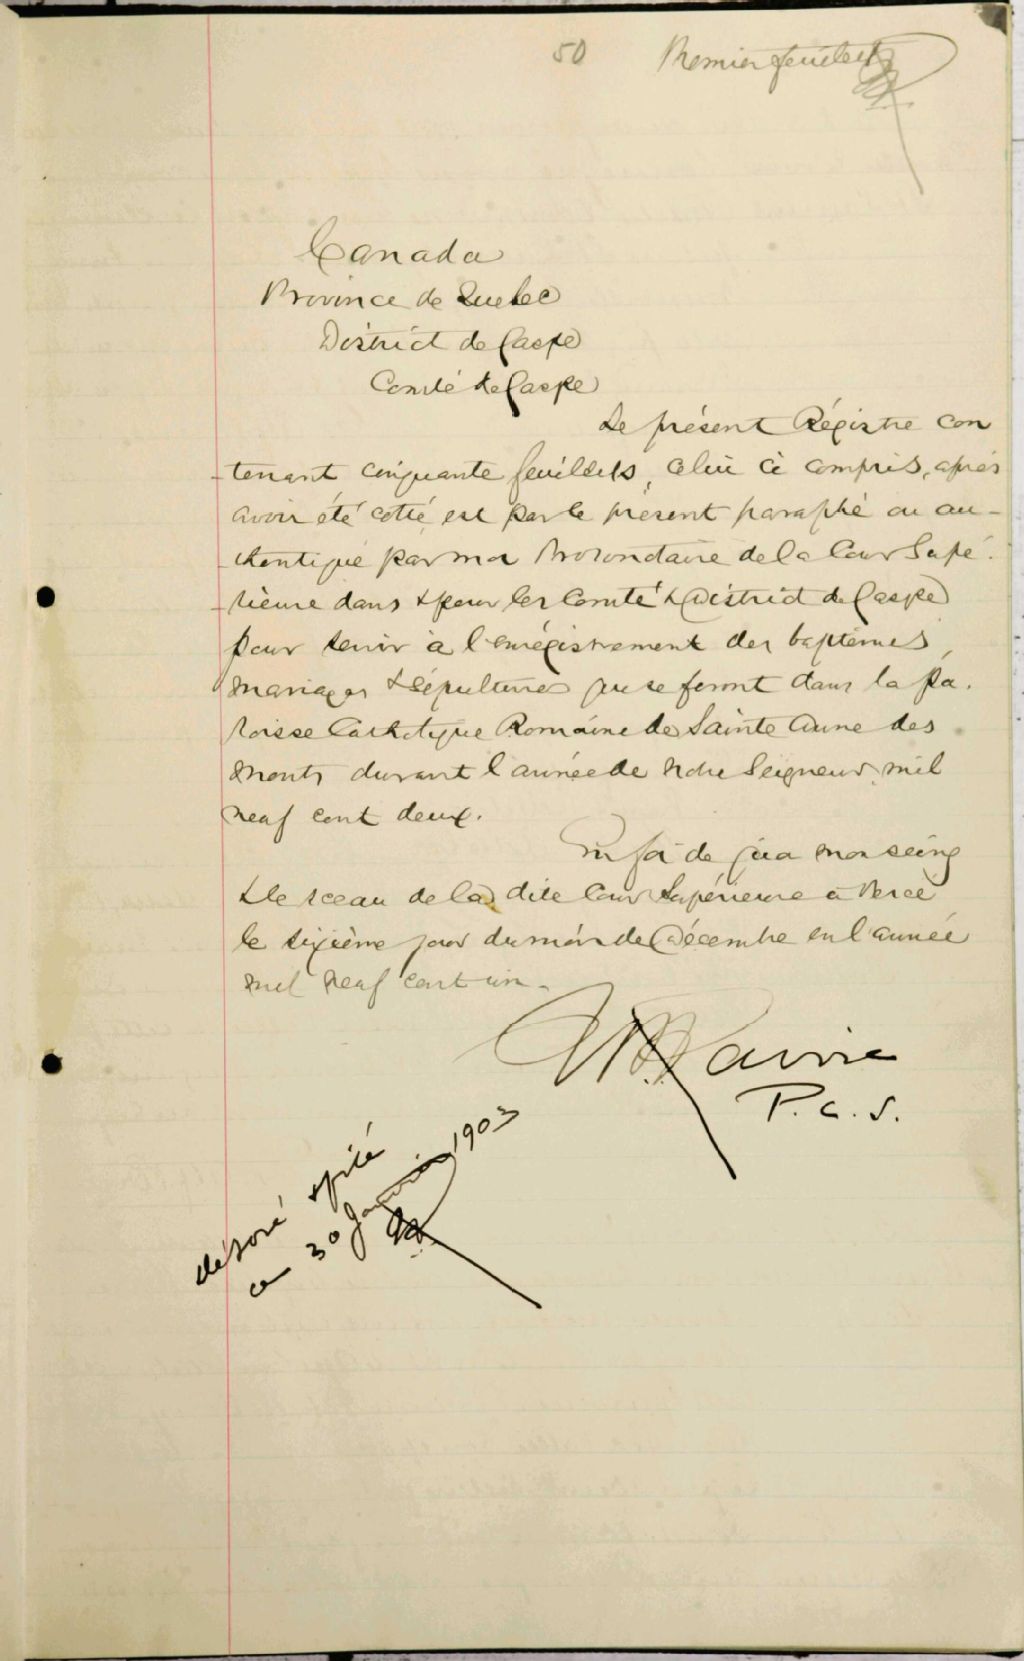 50 Premier feuillet
Canada
Province de Quebec
District de Gaspe
Comté de Gaspe
Le présent Régistre con
tenant cinquante feuillets, celui ci compris, après
avoir été cotté, est par le présent paraphé ou au-
thentiqué par moi Protonotaire de la Cour Supé-
rieure dans & pour les Comté & District de Gaspe
pour servir à l'enrégistrement des baptêmes,
mariages & sépultures qui se feront dans la Pa-
roisse Catholique Romaine de Sainte Anne des
Monts durant l'année de notre Seigneur mil
neuf cent deux.
En foi de quoi mon seing
& le sceau de la dite Cour Supérieure à Percé
le sixième jour du mois de Décembre en l'année
mil neuf cent un.
Lavoie
P.C.S.
déposé
ce 30 Janvier 1903